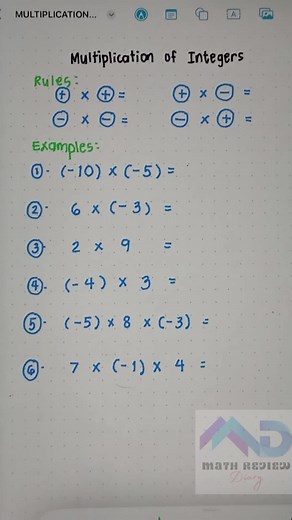 MULTIPLICATION...
Multiplication of Integers
Rules:
⊕ × ⊕ = ⊕ × ⊖ =
⊖ × ⊖ = ⊖ × ⊕ =
Examples:
①. (-10) × (-5) =
②. 6 × (-3) =
③. 2 × 9 =
④. (-4) × 3 =
⑤. (-5) × 8 × (-3) =
⑥. 7 × (-1) × 4 =
MD
MATH REVIEW
Diary